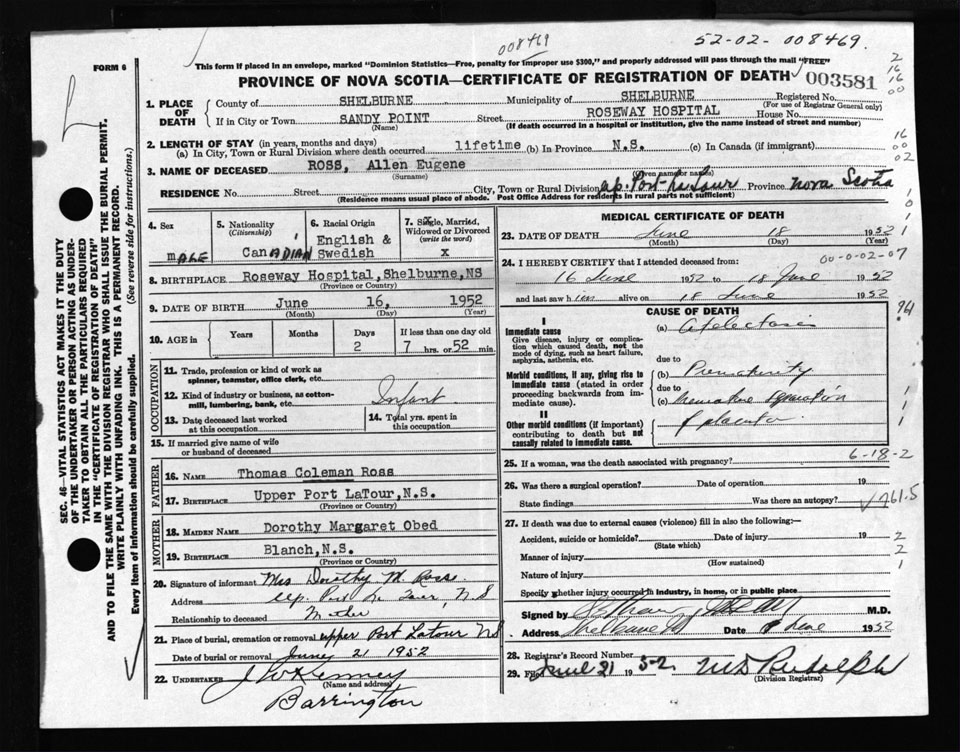 008469
52-02- 008469.
FORM 6
This form if placed in an envelope, marked "Dominion Statistics—Free, penalty for improper use $300," and properly addressed will pass through the mail "FREE"
PROVINCE OF NOVA SCOTIA—CERTIFICATE OF REGISTRATION OF DEATH 003581
SEC. 46—VITAL STATISTICS ACT MAKES IT THE DUTY
OF THE UNDERTAKER OR PERSON ACTING AS UNDER-
TAKER TO OBTAIN ALL THE PARTICULARS REQUIRED
IN THE "CERTIFICATE OF REGISTRATION OF DEATH"
AND TO FILE THE SAME WITH THE DIVISION REGISTRAR WHO SHALL ISSUE THE BURIAL PERMIT.
WRITE PLAINLY WITH UNFADING INK. THIS IS A PERMANENT RECORD.
Every item of information should be carefully supplied. (See reverse side for instructions.)
1. PLACE OF DEATH
County of SHELBURNE Municipality of SHELBURNE Registered No.
(For use of Registrar General only)
If in City or Town SANDY POINT Street ROSEWAY HOSPITAL House No.
(Name) (If death occurred in a hospital or institution, give the name instead of street and number)
2. LENGTH OF STAY (in years, months and days)
(a) In City, Town or Rural Division where death occurred lifetime (b) In Province N.S. (c) In Canada (if immigrant)
3. NAME OF DECEASED ROSS, Allen Eugene
(Surname) (Given name or names)
RESIDENCE No. Street City, Town or Rural Division up. Port La Tour Province Nova Scotia
(Residence means usual place of abode. Post Office Address for residents in rural parts not sufficient)
4. Sex
mALE
5. Nationality
(Citizenship)
CanADIAN
6. Racial Origin
English &
Swedish
7. Single, Married,
Widowed or Divorced
(write the word)
x
8. BIRTHPLACE Roseway Hospital, Shelburne, NS
(Province or Country)
9. DATE OF BIRTH June 16, 1952
(Month) (Day) (Year)
10. AGE in Years Months Days If less than one day old
2 7 hrs. or 52 min.
OCCUPATION
11. Trade, profession or kind of work as
spinner, teamster, office clerk, etc.
12. Kind of industry or business, as cotton-
mill, lumbering, bank, etc. Infant
13. Date deceased last worked
at this occupation
14. Total yrs. spent in
this occupation
15. If married give name of wife
or husband of deceased
FATHER
16. NAME Thomas Coleman Ross
17. BIRTHPLACE Upper Port LaTour, N.S.
(Province or Country)
MOTHER
18. MAIDEN NAME Dorothy Margaret Obed
19. BIRTHPLACE Blanch, N.S.
(Province or Country)
20. Signature of informant Mrs Dorothy M. Ross.
Address Up. Port La Tour, N.S
Relationship to deceased Mother
21. Place of burial, cremation or removal upper Port Latour NS
Date of burial or removal June 21 1952
22. UNDERTAKER J W Kenney
(Name and address)
Barrington
MEDICAL CERTIFICATE OF DEATH
23. DATE OF DEATH June 18 1952
(Month) (Day) (Year)
24. I HEREBY CERTIFY that I attended deceased from: 00-0-02-07
16 June 1952 to 18 June 1952
and last saw him alive on 18 June 1952
CAUSE OF DEATH
I
Immediate cause
Give disease, injury or complica-
tion which caused death, not the
mode of dying, such as heart failure,
asphyxia, asthenia, etc.
(a) Atelectasis
due to
Morbid conditions, if any, giving rise to
immediate cause (stated in order
proceeding backwards from im-
mediate cause).
(b) Prematurity
due to
(c) Premature Separation
of placenta
II
Other morbid conditions (if important)
contributing to death but not
causally related to immediate cause.
25. If a woman, was the death associated with pregnancy? 6-18-2
26. Was there a surgical operation? Date of operation 19
State findings Was there an autopsy? 761.5
27. If death was due to external causes (violence) fill in also the following:—
Accident, suicide or homicide? Date of injury 19
(State which)
Manner of injury
(How sustained)
Nature of injury
Specify whether injury occurred in industry, in home, or in public place
Signed by M.D.
Address Shelburne NS Date June 1952
28. Registrar's Record Number
29. Filed June 21 1952 MD Rudolph
(Division Registrar)
2
16
16
00
16
00
02
1
0
1
1
1
1
1
2
2
1